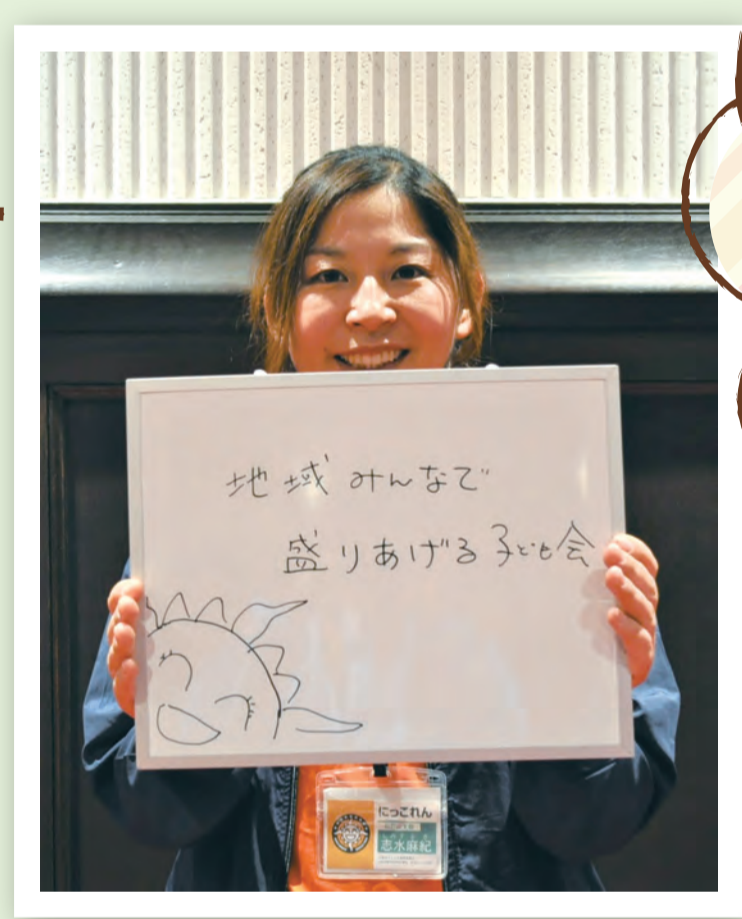 地域みんなで
盛りあげる子ども会
にっこれん
志水麻紀